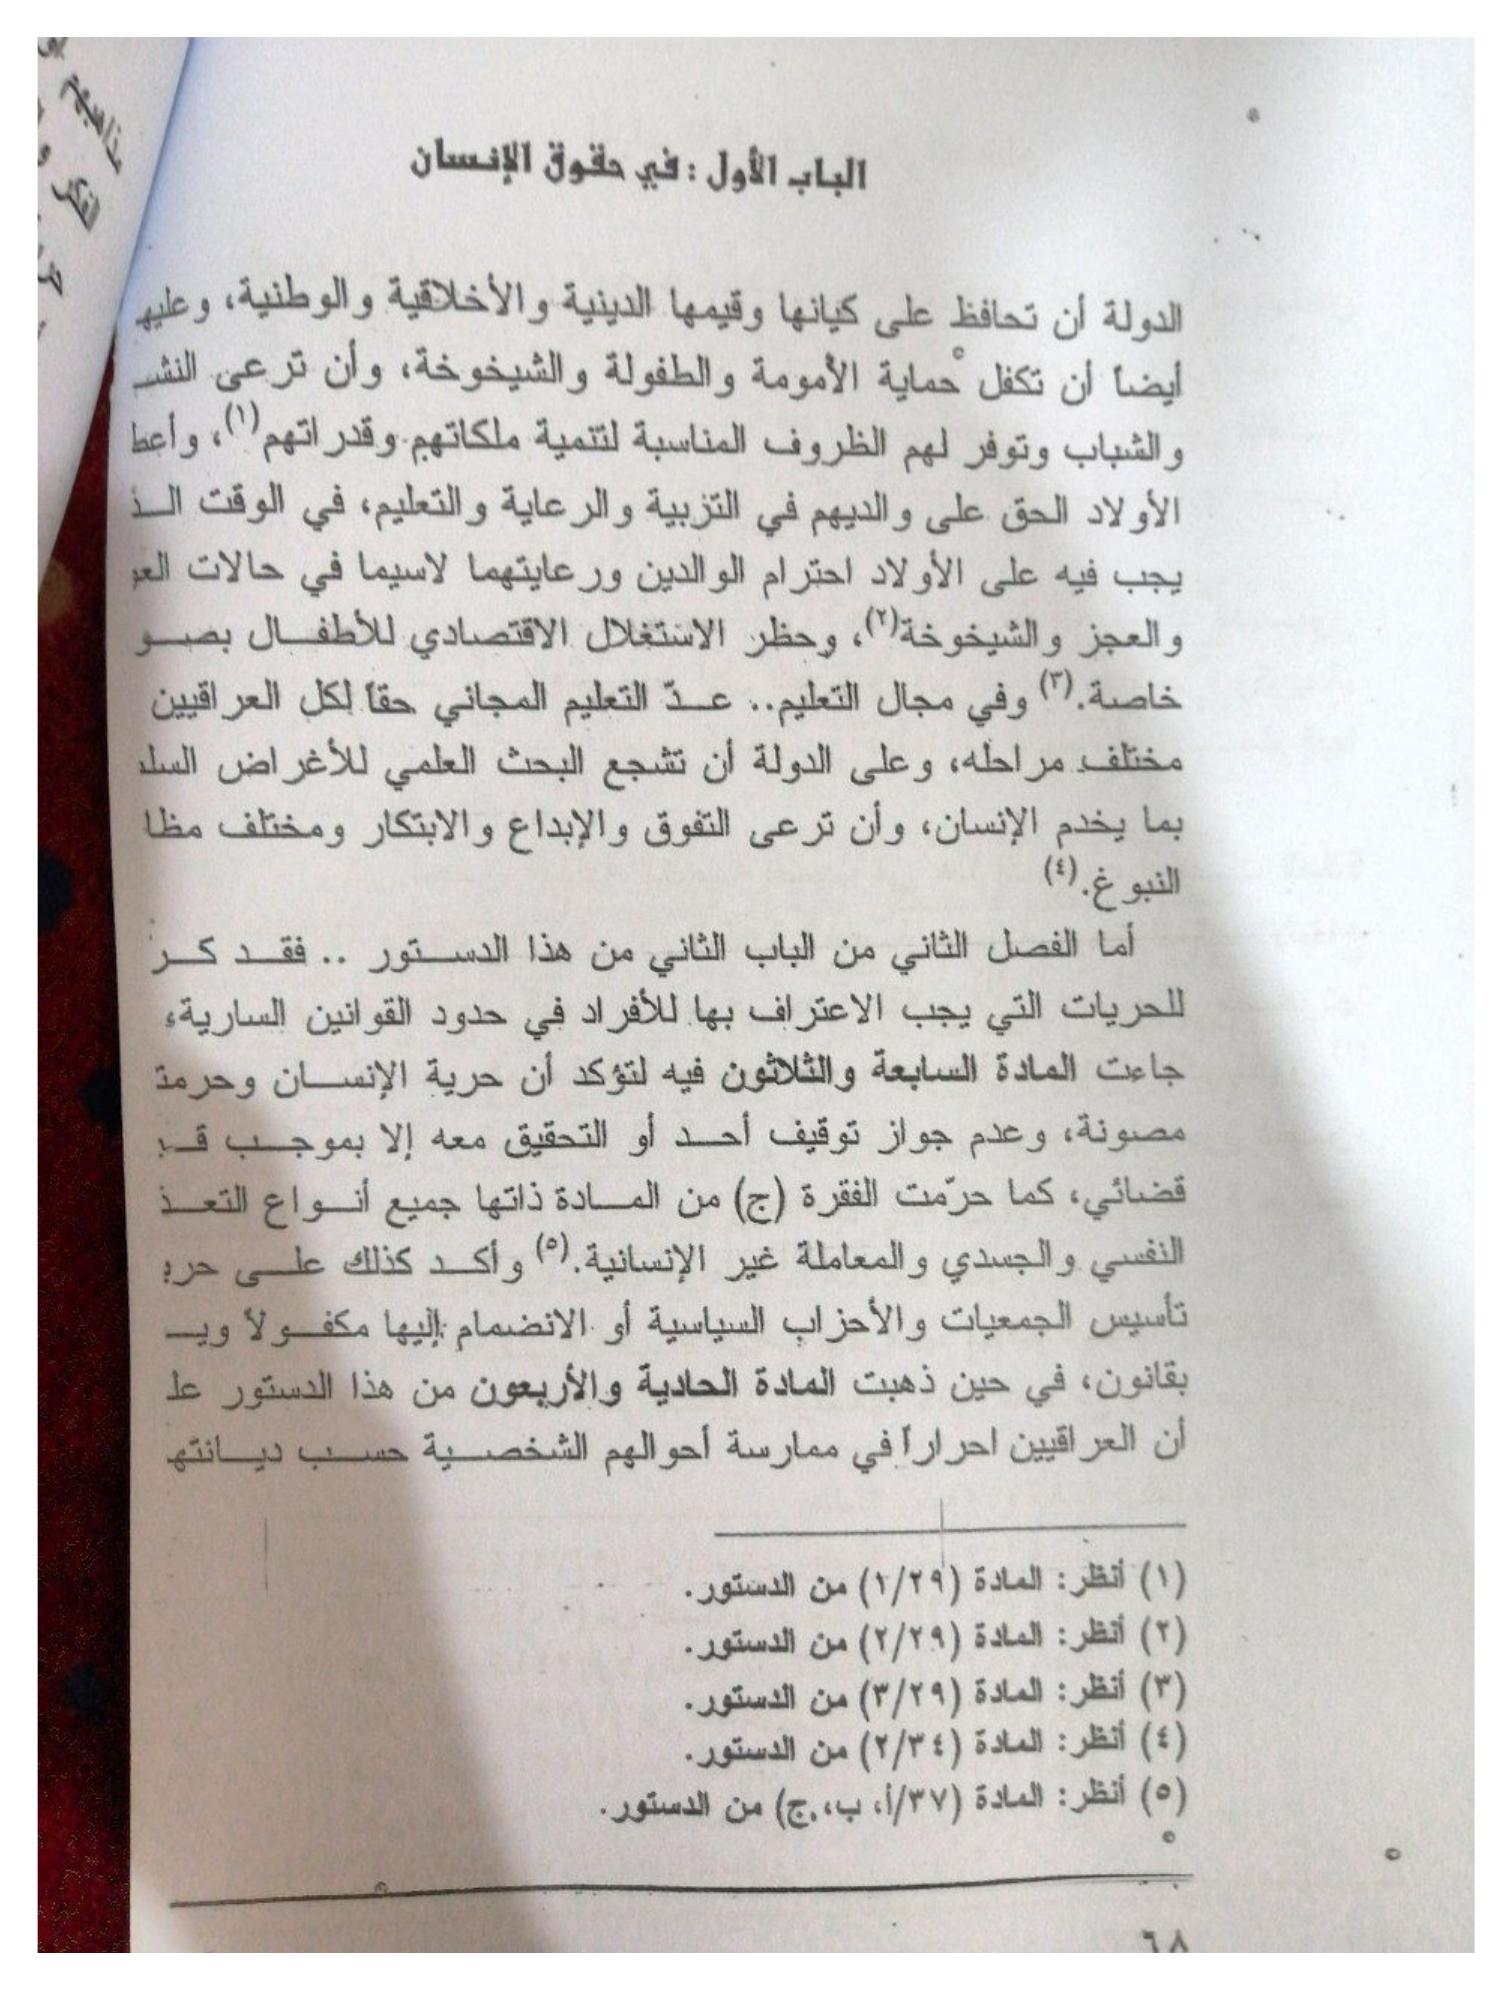 الباب الأول : في حقوق الإنسان
الدولة أن تحافظ على كيانها وقيمها الدينية والأخلاقية والوطنية، وعليه
أيضاً أن تكفل حماية الأمومة والطفولة والشيخوخة، وأن ترعى النشـ
والشباب وتوفر لهم الظروف المناسبة لتنمية ملكاتهم وقدراتهم(١)، وأعط
الأولاد الحق على والديهم في التربية والرعاية والتعليم، في الوقت الـذ
يجب فيه على الأولاد احترام الوالدين ورعايتهما لاسيما في حالات العو
والعجز والشيخوخة(٢)، وحظر الاستغلال الاقتصادي للأطفـال بصـو
خاصة.(٣) وفي مجال التعليم.. عـدّ التعليم المجاني حقاً لكل العراقيين
مختلف مراحله، وعلى الدولة أن تشجع البحث العلمي للأغراض السلـ
بما يخدم الإنسان، وأن ترعى التفوق والإبداع والابتكار ومختلف مظا
النبوغ.(٤)
أما الفصل الثاني من الباب الثاني من هذا الدسـتور .. فقـد كـر
للحريات التي يجب الاعتراف بها للأفراد في حدود القوانين السارية،
جاءت المادة السابعة والثلاثون فيه لتؤكد أن حرية الإنسـان وحرمة
مصونة، وعدم جواز توقيف أحـد أو التحقيق معه إلا بموجـب قـر
قضائي، كما حرّمت الفقرة (ج) من المـادة ذاتها جميع أنـواع التعـذ
النفسي والجسدي والمعاملة غير الإنسانية.(٥) وأكـد كذلك علـى حري
تأسيس الجمعيات والأحزاب السياسية أو الانضمام إليها مكفـولاً ويـ
بقانون، في حين ذهبت المادة الحادية والأربعون من هذا الدستور علـ
أن العراقيين احراراً في ممارسة أحوالهم الشخصـية حسـب ديـانته
(١) أنظر: المادة (١/٢٩) من الدستور.
(٢) أنظر: المادة (٢/٢٩) من الدستور.
(٣) أنظر: المادة (٣/٢٩) من الدستور.
(٤) أنظر: المادة (٢/٣٤) من الدستور.
(٥) أنظر: المادة (٣٧/أ، ب، ج) من الدستور.
٦٨